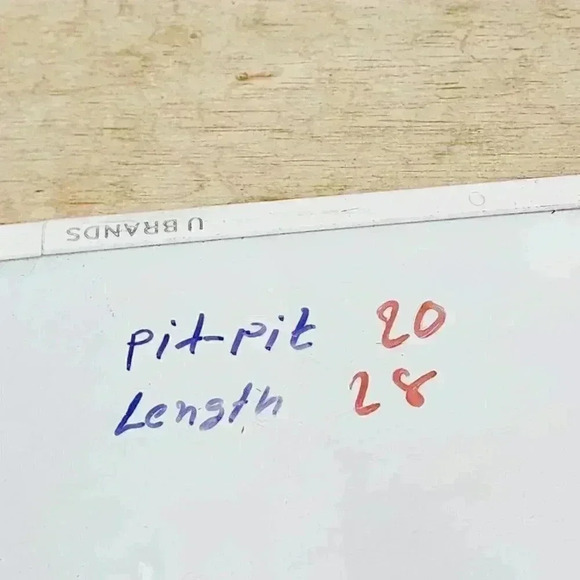 U BRANDS
pit-pit 20
Length 28